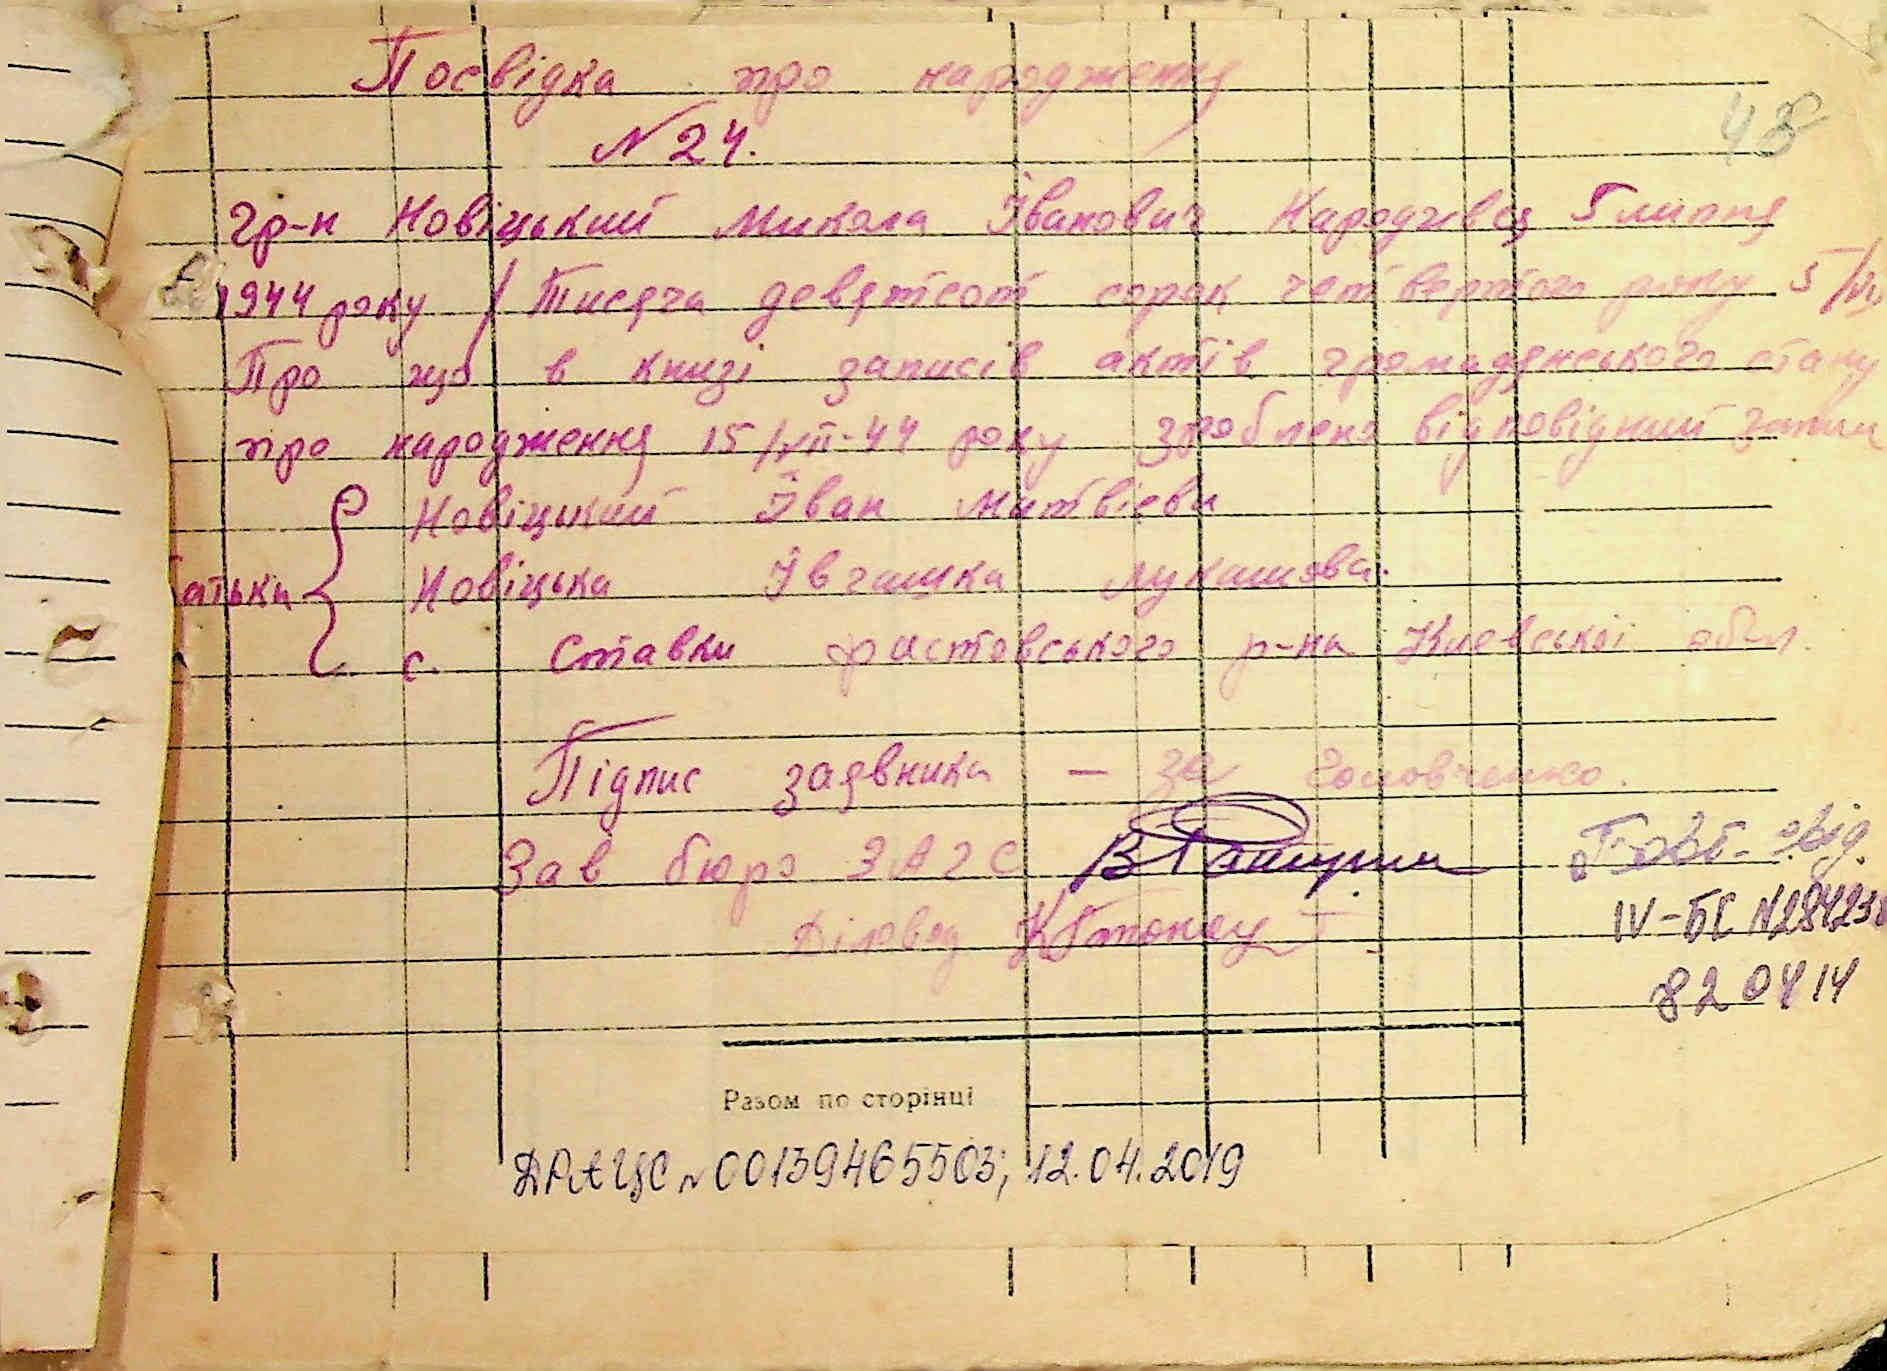 Посвідка про народження
48
N 24.
Гр-н Новіцький Микола Іванович Народився 5 липня
1944 року / Тисяча девятсот сорок четвертого року 5/VII
Про що в книзі записів актів громадянського стану
про народження 15/VII-44 року зроблено відповідний запис
Новіцький Іван Матвієви
батьки Новіцька Івгашка Лукашова.
с. Ставки фастовського р-на Киевської обл.
Підпис заявника - за Головченко.
Зав бюро ЗАГС
Повт. свід.
Діловод
IV-БК N284238
82 04 14
Разом по сторінці
ДРАЦС N 00139465503; 12.04.2019